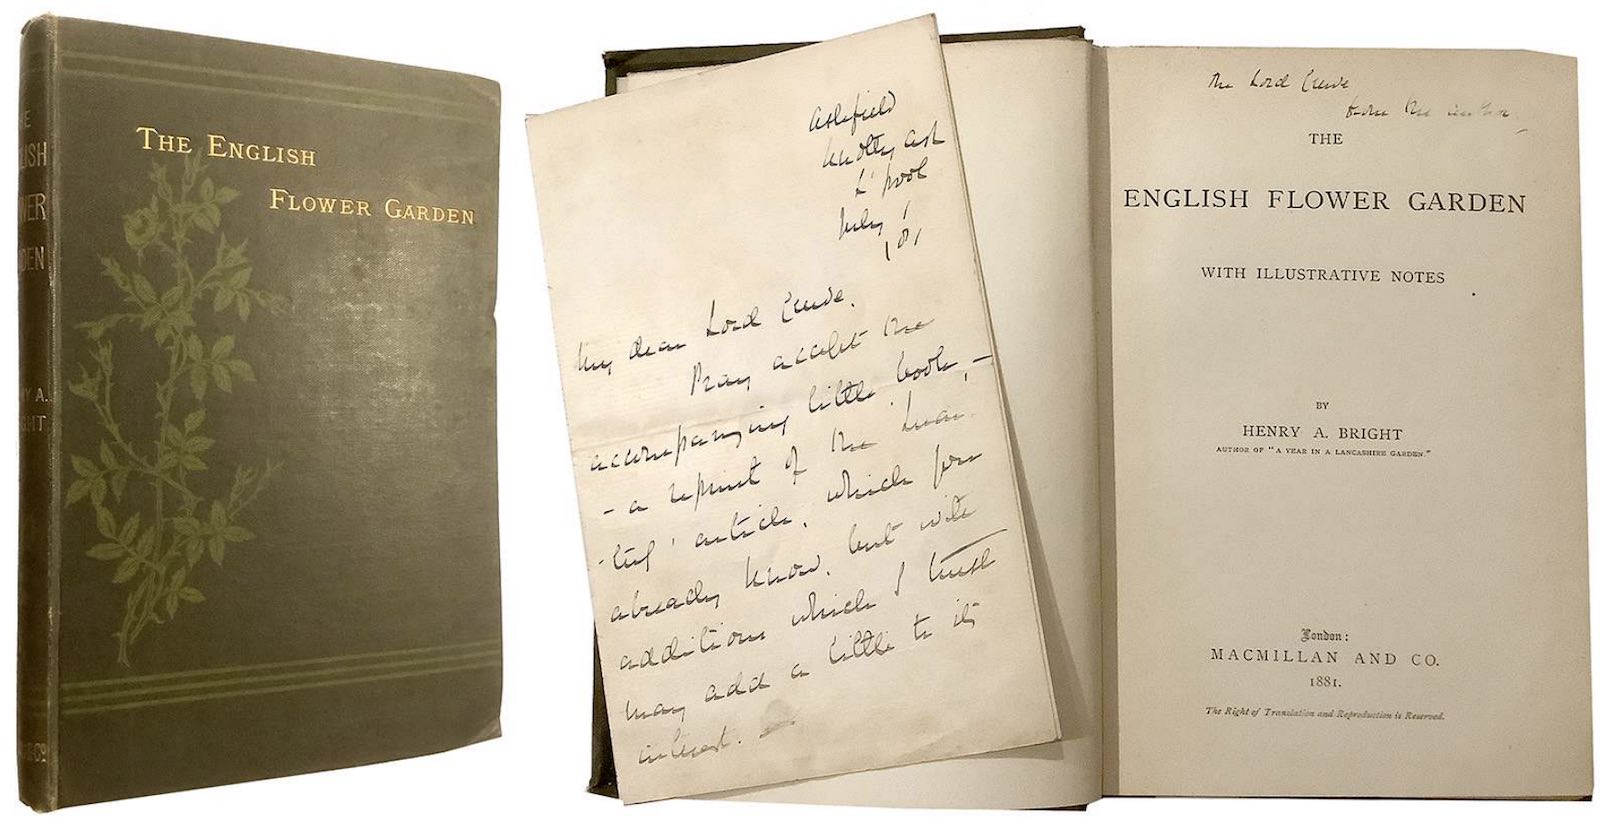 THE ENGLISH
FLOWER GARDEN
Ashfield
Knotty Ash
L'pool
July '81
My dear Lord Crewe,
Pray accept the
accompanying little book, –
– a reprint of the 'Quar
-terly' article, which you
already know, but with
additions which I trust
may add a little to its
interest. –
The Lord Crewe
from the author
THE
ENGLISH FLOWER GARDEN
WITH ILLUSTRATIVE NOTES
BY
HENRY A. BRIGHT
AUTHOR OF "A YEAR IN A LANCASHIRE GARDEN."
London:
MACMILLAN AND CO.
1881.
The Right of Translation and Reproduction is Reserved.